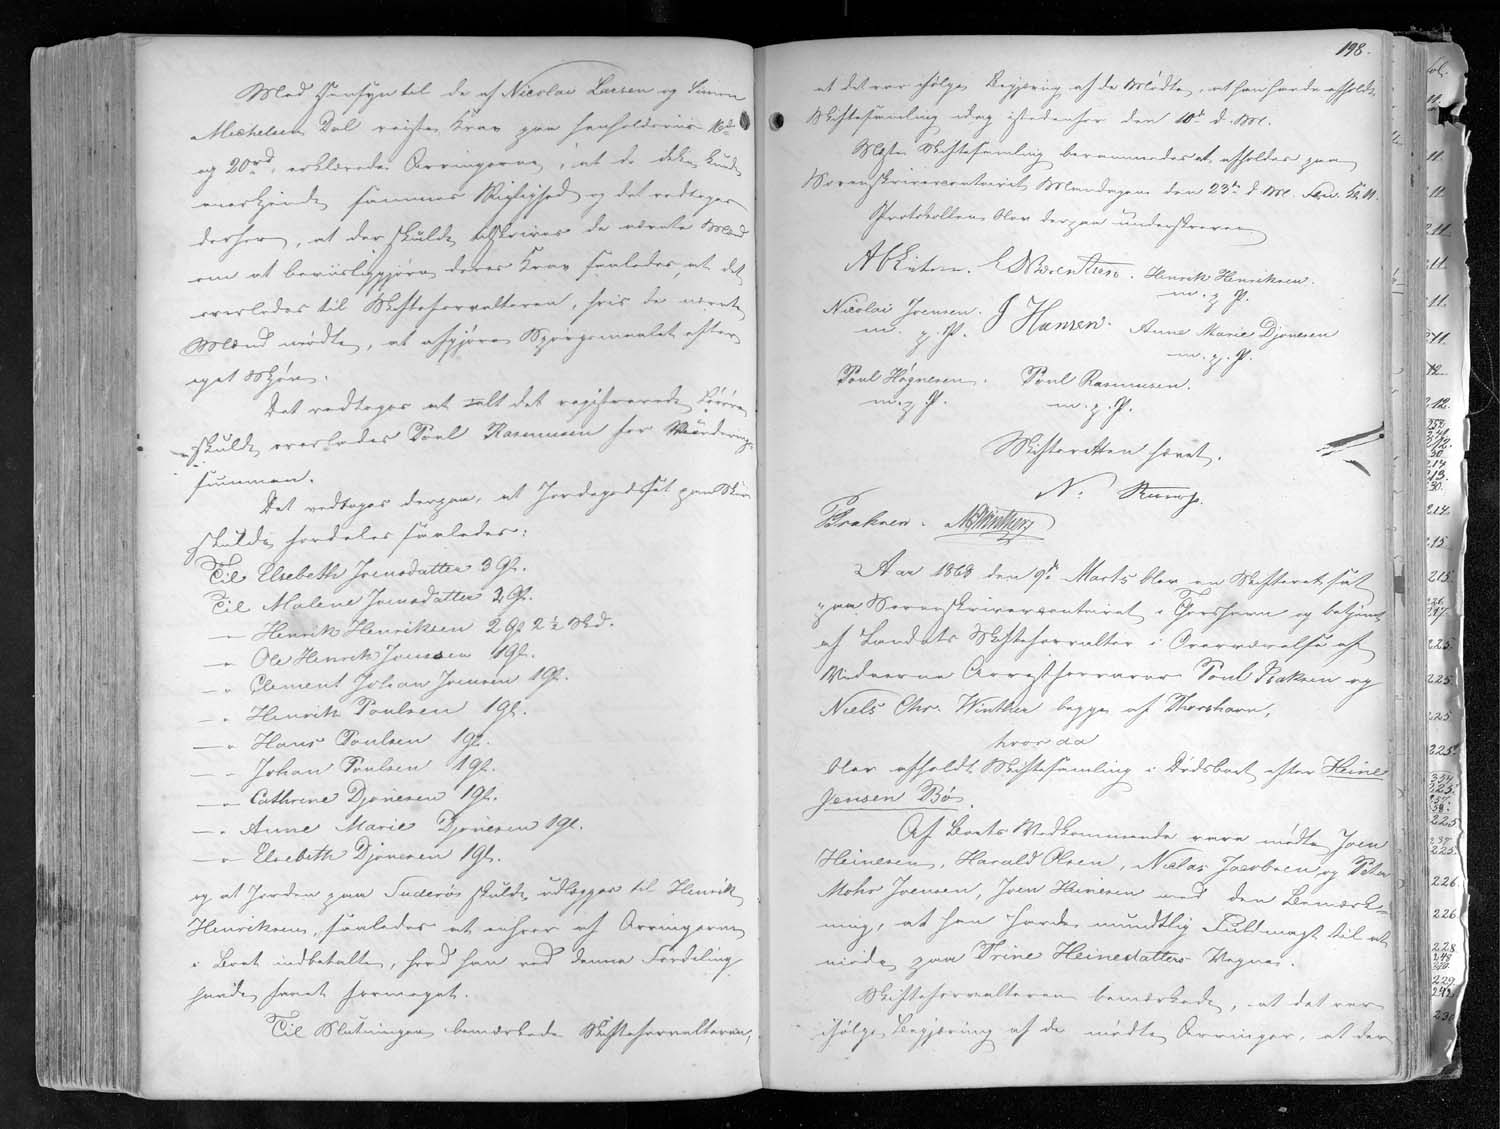 Med Hensyn til de af Nicolai Larsen og Simon
Michelsen Dal reiste Krav paa henholdsviis
og 20rd, erklærede Arvingerne, at de ikke kunde
anerkjende sammes Rigtighed og det vedtoges
derfor, at der skulde tilskrives de nævnte Mænd
om at beviisliggjøre deres Krav saaledes, at det
overlodes til Skifteforvalteren, hvis de nævnte
Mænd mødte, at afgjøre Spørgsmaalet efter
eget Skjøn.
Det vedtoges at alt det registrerede Løsøre
skulde overlades Poul Rasmussen for Vurderings-
summen.
Det vedtoges derpaa, at Jordegodset paa
skulde fordeles saaledes:
Til Elsebeth Joensdatter 3 Gl.
Til Malene Joensdatter 2 Gl.
— " Henrik Henriksen 2 Gl 2 ½ Skd.
— " Ole Henrik Joensen 1 Gl.
— " Clement Johan Joensen 1 Gl.
— " Henrik Poulsen 1 Gl.
— " Hans Poulsen 1 Gl.
— " Johan Poulsen 1 Gl.
— " Cathrine Djonesen 1 Gl.
— " Anne Marie Djonesen 1 Gl.
— " Elsebeth Djonesen 1 Gl.
og at Jorden paa Suderø skulde udlægges til Henrik
Henriksen, saaledes at enhver af Arvingerne
i Boet indbetalte, hvad han ved denne Fordeling
havde faaet formeget.
Til Slutningen bemærkede Skifteforvalteren,
198.
at det var ifølge Begjæring af de Mødte, at han havde afholdt
Skiftesamling idag istedenfor den 10de d. M.
Næste Skiftesamling berammedes at afholdes paa
Sorenskrivercontoiret Mandagen den 23de d. M. Kl. 11.
Protokollen blev derpaa underskreven
Henrik Henriksen.
m. p. P.
Nicolai Joensen. J Hansen. Anne Marie Djonesen
m. p. P. m. p. P.
Poul Høgnesen. Poul Rasmussen.
m. p. P. m. p. P.
Skifteretten hævet.
N.
Praksen. NCWinther
Aar 1868 den 9de Marts blev en Skifteret sat
paa Sorenskrivercontoiret i Thorshavn og betjent
af Landets Skifteforvalter i Overværelse af
Vidnerne Arrestforvarer Poul Praksen og
Niels Chr. Winther begge af Thorshavn,
hvor da
blev afholdt Skiftesamling i Dødsboet efter Heine
Jensen Bø.
Af Boets Vedkommende vare mødte Joen
Heinesen, Harald Olsen, Niclas Jacobsen og Peter
Mohr Joensen, Joen Heinesen med den Bemærk-
ning, at han havde mundtlig Fuldmagt til at
møde paa Trine Heinesdatters Vegne.
Skifteforvalteren bemærkede, at det var
ifølge Begjæring af de mødte Arvinger, at der